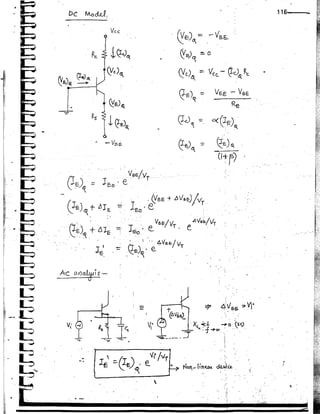 DC Model.
118
Vcc
Rc ↓(Ic)Q
(Vc)Q
(VB)Q (IB)Q →
(VE)Q
RE ↓(IE)Q
-VEE
(VE)Q = -VBE
(VB)Q = 0
(Vc)Q = Vcc - (Ic)Q Rc
(IE)Q = VEE - VBE / RE
(Ic)Q = α(IE)Q
(IB)Q = (IE)Q / (1+β)
(IE)Q = IEO . e^VBE/VT
(IE)Q + ΔIE = IEO . e^(VBE + ΔVBE)/VT
(IE)Q + ΔIE = IEO . e^VBE/VT . e^ΔVBE/VT
IE' = (IE)Q . e^ΔVBE/VT
AC analysis -
Vi RE CE ≡ Vi (ΔVBE) ⇒ ΔVBE = Vi
IE' = (IE)Q . e^Vi/VT → Non-linear device